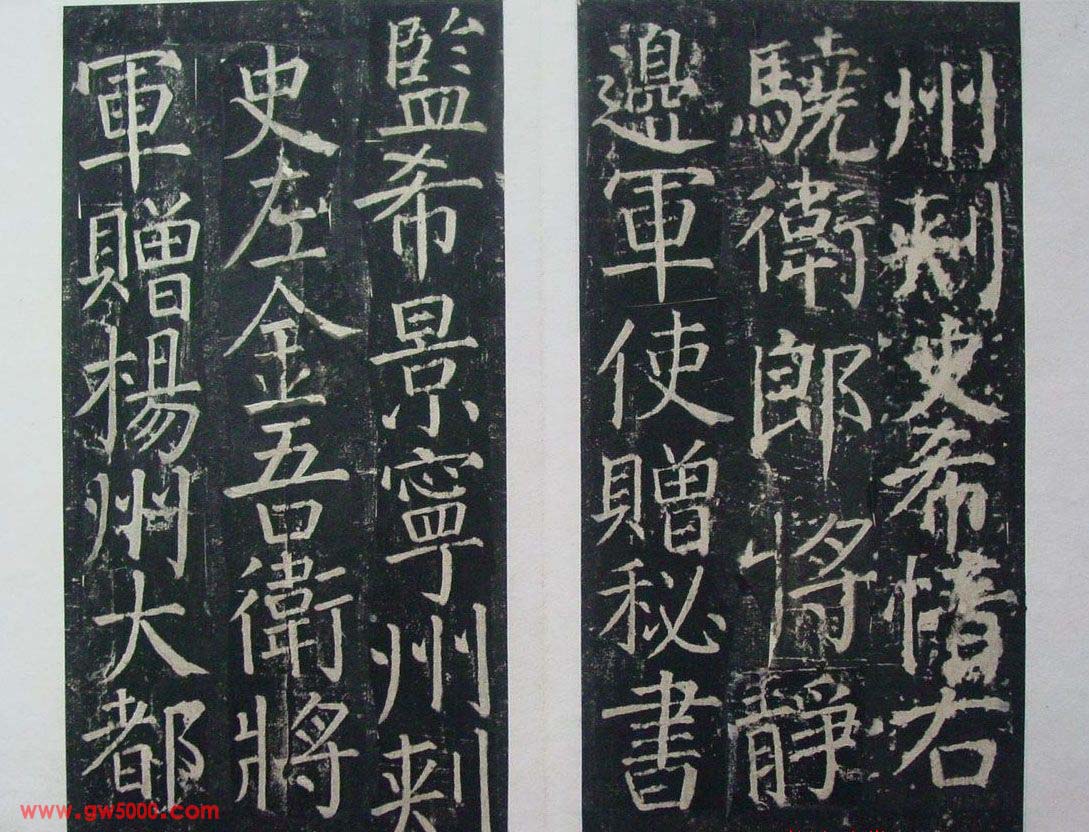 州刾史希愔右
驍衛郎將靜
邊軍使贈秘書
監希景寧州刾
史左金吾衛將
軍贈楊州大都
www.gw5000.com